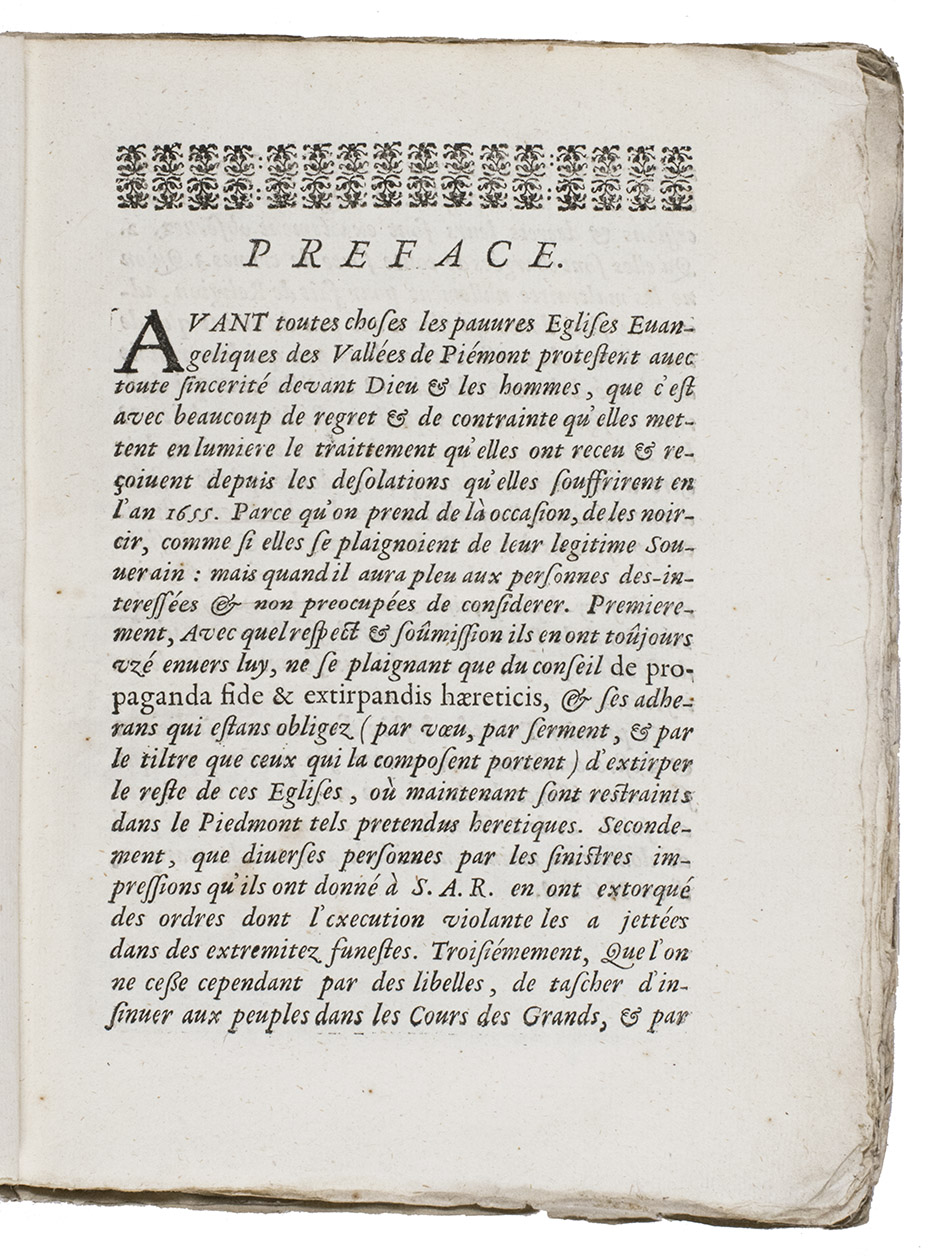 PREFACE.
AVANT toutes choſes les pauures Egliſes Euan-
geliques des Vallées de Piémont proteſtent auec
toute ſincerité devant Dieu & les hommes, que c'eſt
avec beaucoup de regret & de contrainte qu'elles met-
tent en lumiere le traittement qu'elles ont receu & re-
çoiuent depuis les deſolations qu'elles ſouffrirent en
l'an 1655. Parce qu'on prend de là occaſion, de les noir-
cir, comme ſi elles ſe plaignoient de leur legitime Sou-
uerain : mais quand il aura pleu aux perſonnes des-in-
tereſſées & non preocupées de conſiderer. Premiere-
ment, Avec quel reſpect & ſoûmiſſion ils en ont toûjours
vzé enuers luy, ne ſe plaignant que du conſeil de pro-
paganda fide & extirpandis hæreticis, & ſes adhe-
rans qui eſtans obligez (par vœu, par ſerment, & par
le tiltre que ceux qui la compoſent portent) d'extirper
le reſte de ces Egliſes, où maintenant ſont restraints
dans le Piedmont tels pretendus heretiques. Seconde-
ment, que diuerſes perſonnes par les ſinistres im-
preſſions qu'ils ont donné à S. A. R. en ont extorqué
des ordres dont l'execution violante les a jettées
dans des extremitez funeſtes. Troiſiémement, Que l'on
ne ceſſe cependant par des libelles, de taſcher d'in-
ſinuer aux peuples dans les Cours des Grands, & par